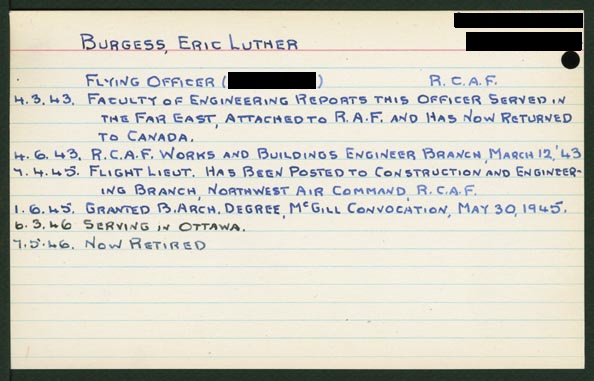 Burgess, Eric Luther
Flying Officer ( ) R.C.A.F.
4.3.43. Faculty of Engineering Reports this Officer Served in
the Far East, attached to R.A.F. and has now returned
to Canada.
4.6.43. R.C.A.F. Works and Buildings Engineer Branch, March 12,'43
7.4.45. Flight Lieut. Has been posted to Construction and Engineer-
ing Branch, Northwest Air Command, R.C.A.F.
1.6.45. Granted B.Arch. Degree, McGill Convocation, May 30, 1945.
6.3.46 Serving in Ottawa.
7.5.46. Now Retired